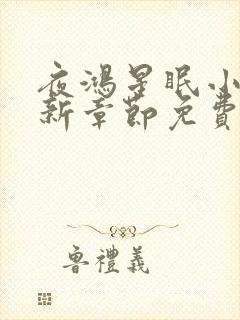 夜鴻星眠小
新章節免費
魯禮義